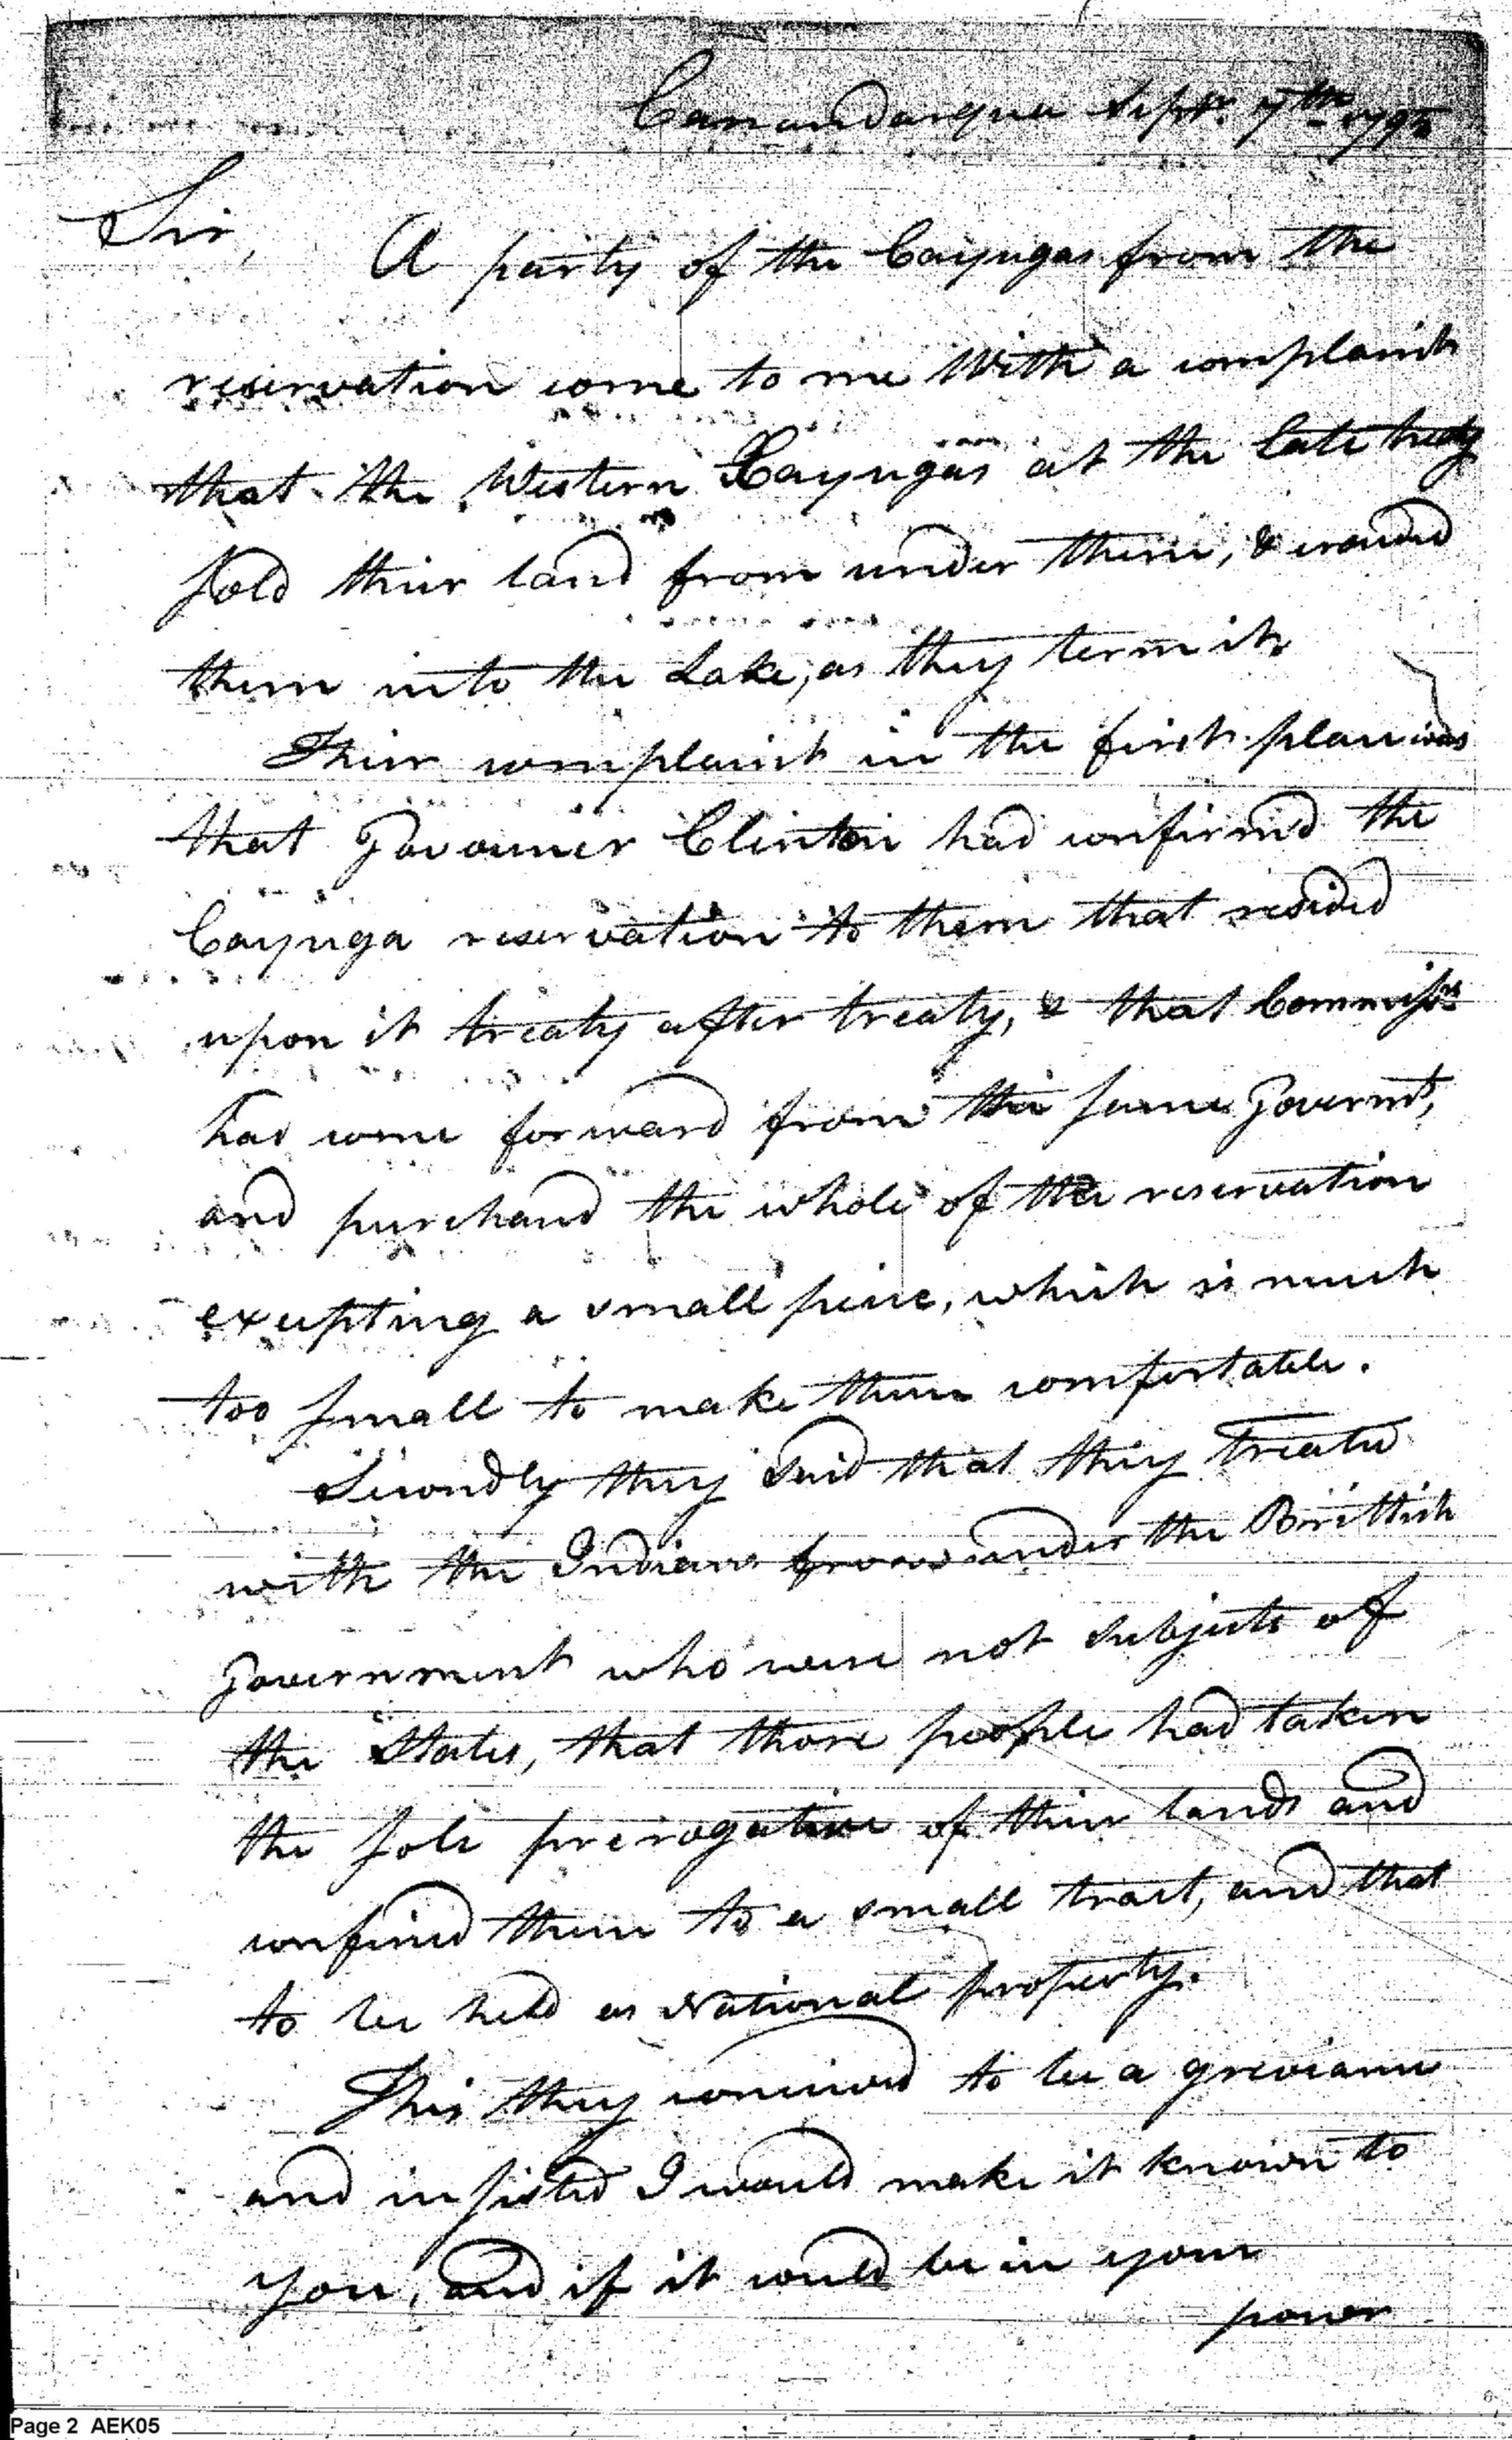 Canandarqua Sept. 7th 1795
Sir, A party of the Cayugas from the
reservation come to me With a complaint
that the Western Cayugas at the late treaty
sold their land from under them, & crouded
them into the Lake, as they term it
Their complaint in the first place was
that Govouner Clinton had confirmd the
Cayuga reservation to them that resided
upon it treaty after treaty, & that Commissrs
had come forward from the same Governt,
and purchased the whole of the reservation
excepting a small piece, which is much
too small to make them comfortable.
Secondly they said that they Treated
with the Indians from under the Brittish
Government who were not subjects of
the States, that those people had taken
the sole prerogative of their lands and
confined them to a small tract, and that
to be held as National property.
This they conceived to be a grieviance
and insisted I would make it known to
you, and if it would be in your
power
Page 2 AEK05